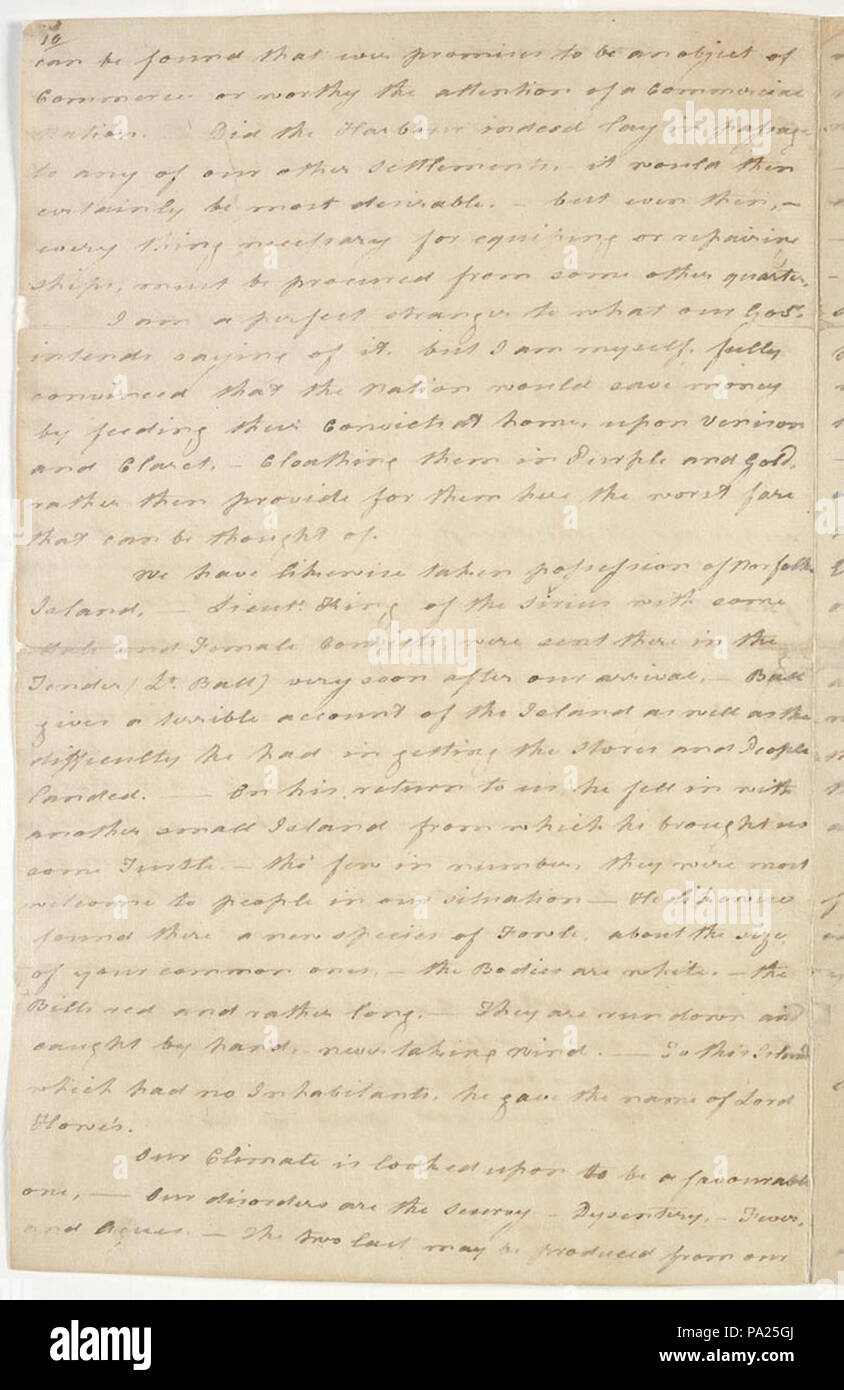 10
can be found that ever promises to be an object of
Commerce or worthy the attention of a Commercial
Nation. Did the Harbour indeed lay in passage
to any of our other Settlements, it would then
certainly be most desirable. – but even then, –
every thing necessary for equiping or repairing
ships, must be procured from some other quarter.
I am a perfect stranger to what our Govr.
intends saying of it. but I am myself fully
convinced that the Nation would save money
by feeding their Convicts at home, upon Venison
and Claret, – Cloathing them in Purple and Gold,
rather then provide for them here the worst fare
that can be thought of.
We have likewise taken possession of Norfolk
Island, – Lieut. King of the Sirius with some
Male and Female Convicts were sent there in the
Tender (Lt. Ball) very soon after our arrival, – Ball
gives a terrible account of the Island as well as the
difficulty he had in getting the Stores and People
landed. — On his return to us he fell in with
another small Island from which he brought us
some Turtle. – tho' few in number, they were most
welcome to people in our situation – He likewise
found there a new species of Fowle, about the size
of your common ones, – the Bodies are white, – the
Bills red and rather long. – They are run down and
caught by hand, never taking wind. — To this Island
which had no Inhabitants, he gave the name of Lord
Howe's.
Our Climate is looked upon to be a favourable
one, — Our disorders are the Scurvy – Dysentery, – Fever,
and Agues. – The two last may be produced from our
alamy
alamy
alamy
alamy
PA25GJ
www.alamy.com